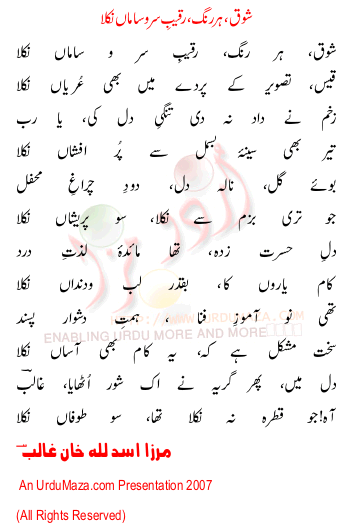 شوق، ہر رنگ، رقیبِ سر و ساماں نکلا
شوق، ہر رنگ، رقیبِ سر و ساماں نکلا
قیس، تصویر کے پردے میں بھی عُریاں نکلا
زخم نے داد نہ دی تنگیِ دل کی، یا رب
تیر بھی سینۂ بسمل سے پُر افشاں نکلا
بوئے گل، نالہ دل، دودِ چراغِ محفل
جو تری بزم سے نکلا، سو پریشاں نکلا
دلِ حسرت زدہ، تھا مائدۂ لذتِ درد
کام یاروں کا، بقدرِ لب ودنداں نکلا
تھی آموزِ فنا ، ہمتِ دشوار پسند
سخت مشکل ہے کہ، یہ کام بھی آساں نکلا
دل میں، پھر گریہ نے اک شور اُٹھایا، غالبؔ
آہ!جو قطرہ نہ نکلا تھا، سو طوفاں نکلا
مرزا اسد لله خان غالب
HTTP://WWW.URDUMAZA.COM
ENABLING URDU MORE AND MORE
An UrduMaza.com Presentation 2007
(All Rights Reserved)